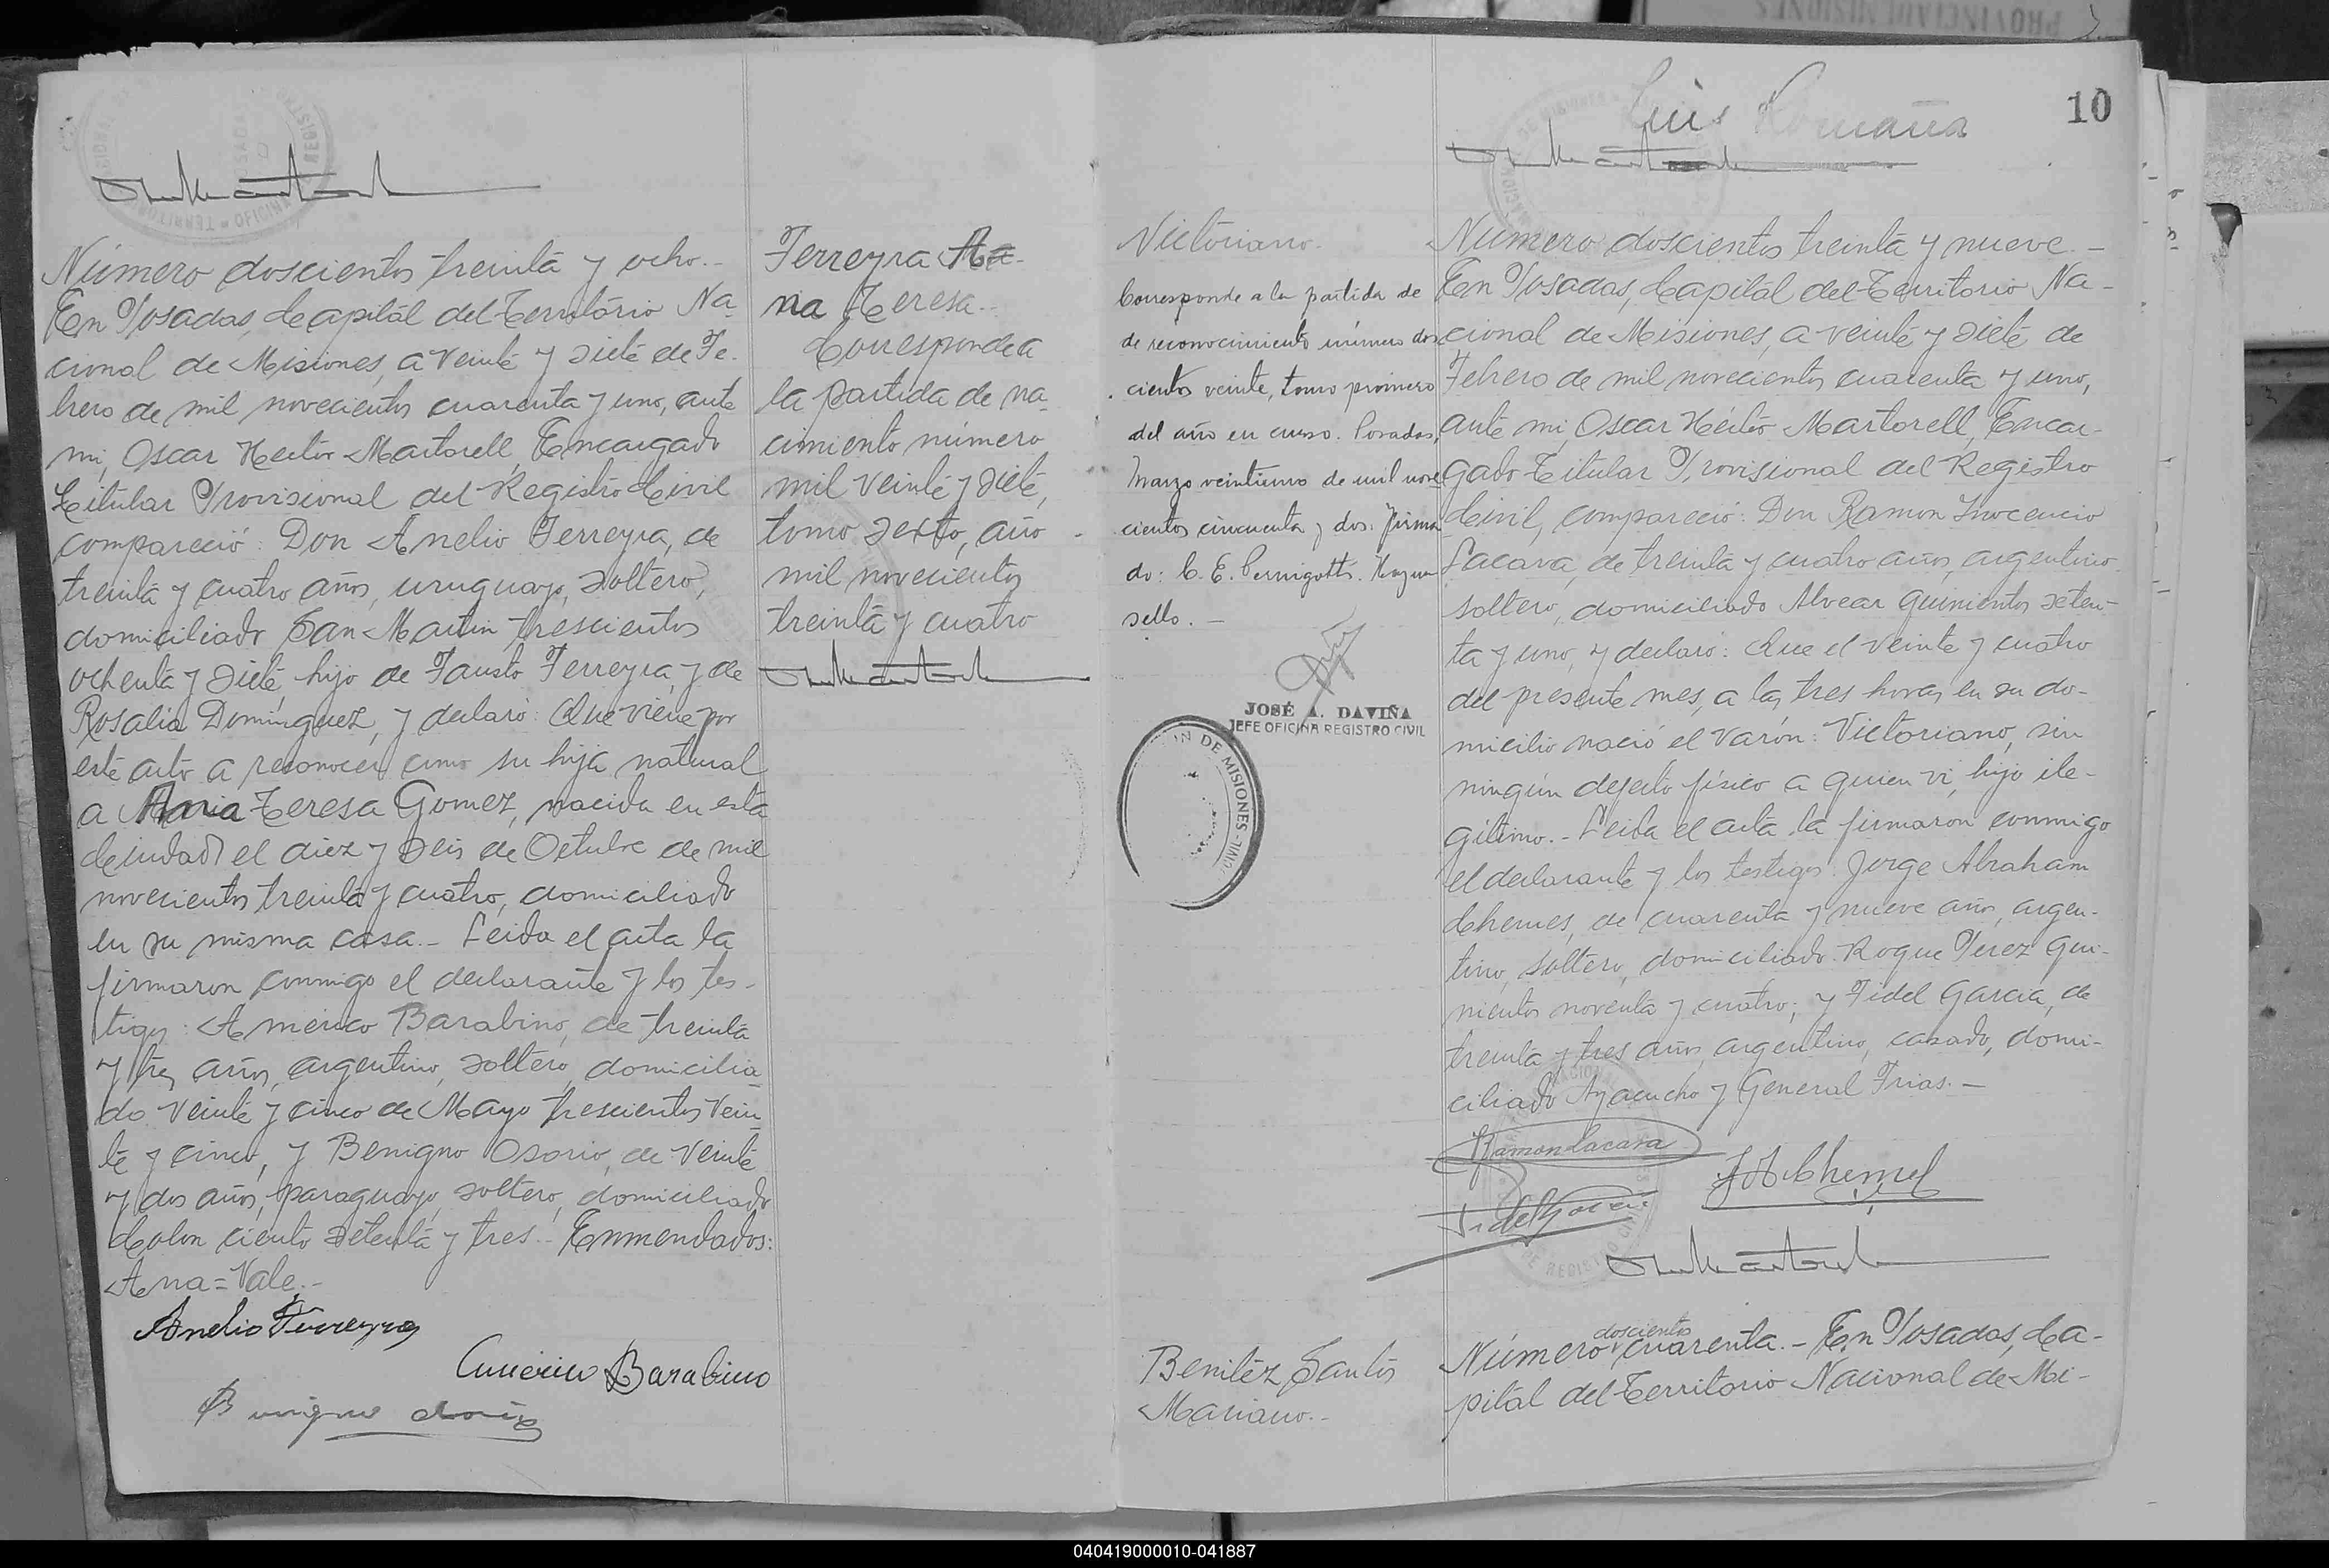 Número doscientos treinta y ocho.-
En Posadas, Capital del Territorio Na-
cional de Misiones, a veinte y siete de Fe-
brero de mil novecientos cuarenta y uno, ante
mi, Oscar Hector Martorell, Encargado
Titular Provisional del Registro Civil
compareció: Don Anelio Ferreyra, de
treinta y cuatro años, uruguayo, soltero,
domiciliado San Martin trescientos
ochenta y siete, hijo de Fausto Ferreyra, y de
Rosalia Dominguez, y declaró: Que viene por
este acto a reconocer como su hija natural
a Ana Teresa Gomez, nacida en esta
Ciudad el diez y seis de Octubre de mil
novecientos treinta y cuatro, domiciliado
en su misma casa.- Leida el acta la
firmaron conmigo el declarante y los tes-
tigos: Américo Barabino, de treinta
y tres años, argentino, soltero, domicilia-
do Veinte y cinco de Mayo trescientos vein-
te y cinco, y Benigno Osorio, de veinte
y dos años, paraguayo, soltero, domiciliado
Colon ciento setenta y tres.- Enmendados:
Ana=Vale.-
Anelio Ferreyra
Américo Barabino
Benigno
Ferreyra A-
na Teresa.-
Corresponde a
la partida de na-
cimiento número
mil veinte y siete,
tomo sexto, año
mil novecientos
treinta y cuatro
10
Luis Romaña
Victoriano.
Corresponde a la partida de
de reconocimiento número dos
cientos veinte, tomo primero
del año en curso. Posadas,
Marzo veintiuno de mil nove
cientos cincuenta y dos. Firma
do: C. E. Pernigotti. Hay un
sello.-
JOSÉ A. DAVIÑA
JEFE OFICINA REGISTRO CIVIL
DE MISIONES
CIVIL
Número doscientos treinta y nueve.-
En Posadas, Capital del Territorio Na-
cional de Misiones, a veinte y siete de
Febrero de mil novecientos cuarenta y uno,
ante mi, Oscar Héctor Martorell, Encar-
gado Titular Provisional del Registro
Civil, compareció: Don Ramon Inocencio
Lacava, de treinta y cuatro años, argentino
soltero, domiciliado Alvear quinientos seten-
ta y uno, y declaró: Que el veinte y cuatro
del presente mes, a las tres horas en su do-
micilio nació el varón: Victoriano, sin
ningún defecto físico a quien vi, hijo ile-
gítimo.- Leida el acta la firmaron conmigo
el declarante y los testigos: Jorge Abraham
Chemes, de cuarenta y nueve años, argen-
tino, soltero, domiciliado Roque Perez qui-
nientos noventa y cuatro; y Fidel Garcia, de
treinta y tres años, argentino, casado, domi-
ciliado Ayacucho y General Frias.-
Ramon Lacava
J A Chemes
Fidel Garcia
Benitez Santos
Mariano.-
doscientos
Número cuarenta.- En Posadas, Ca-
pital del Territorio Nacional de Mi-
040419000010-041887